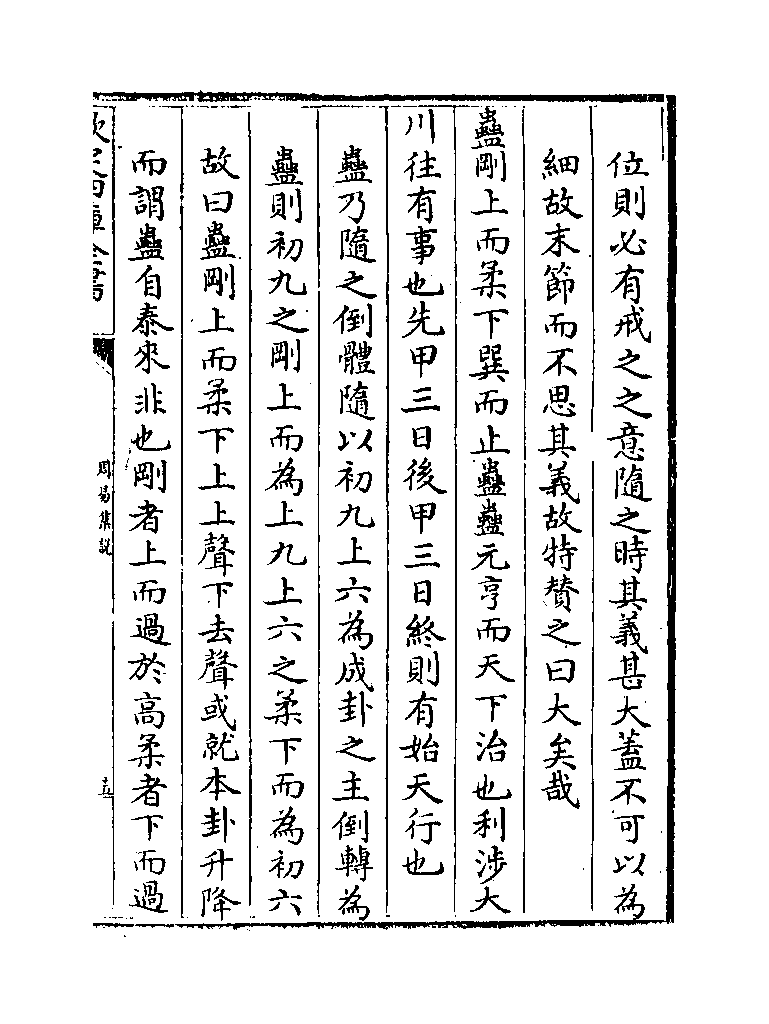 位則必有戒之之意隨之時其義甚大蓋不可以為
細故末節而不思其義故特賛之曰大矣哉
蠱剛上而柔下巽而止蠱蠱元亨而天下治也利涉大
川往有事也先甲三日後甲三日終則有始天行也
蠱乃隨之倒體隨以初九上六為成卦之主倒轉為
蠱則初九之剛上而為上九上六之柔下而為初六
故曰蠱剛上而柔下上上聲下去聲或就本卦升降
而謂蠱自泰來非也剛者上而過於高柔者下而過
欽定四庫全書
周易集說
十五